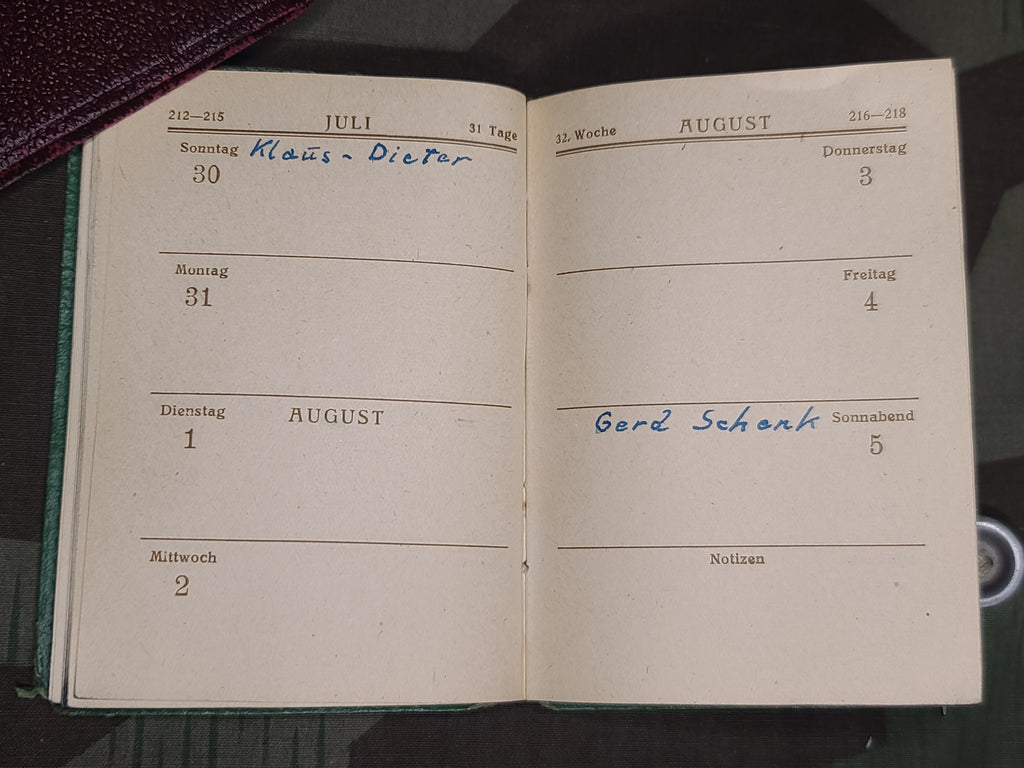 212—215 JULI 31 Tage
Sonntag Klaus - Dieter
30
Montag
31
Dienstag AUGUST
1
Mittwoch
2
32. Woche AUGUST 216—218
Donnerstag
3
Freitag
4
Gerd Schenk Sonnabend
5
Notizen